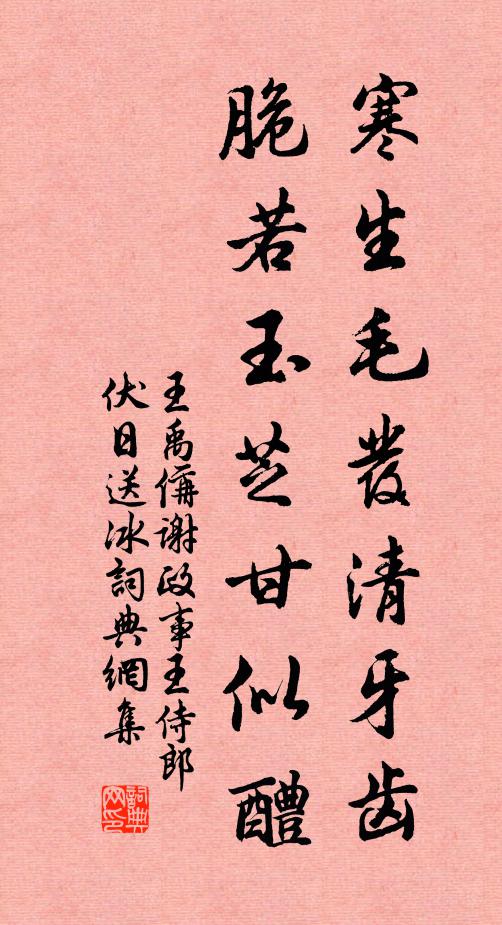 寒生毛發清牙齿
脆若玉芝甘似醴
王禹偁謝政事王侍郎
伏日送冰詞典網集
詞典
网印